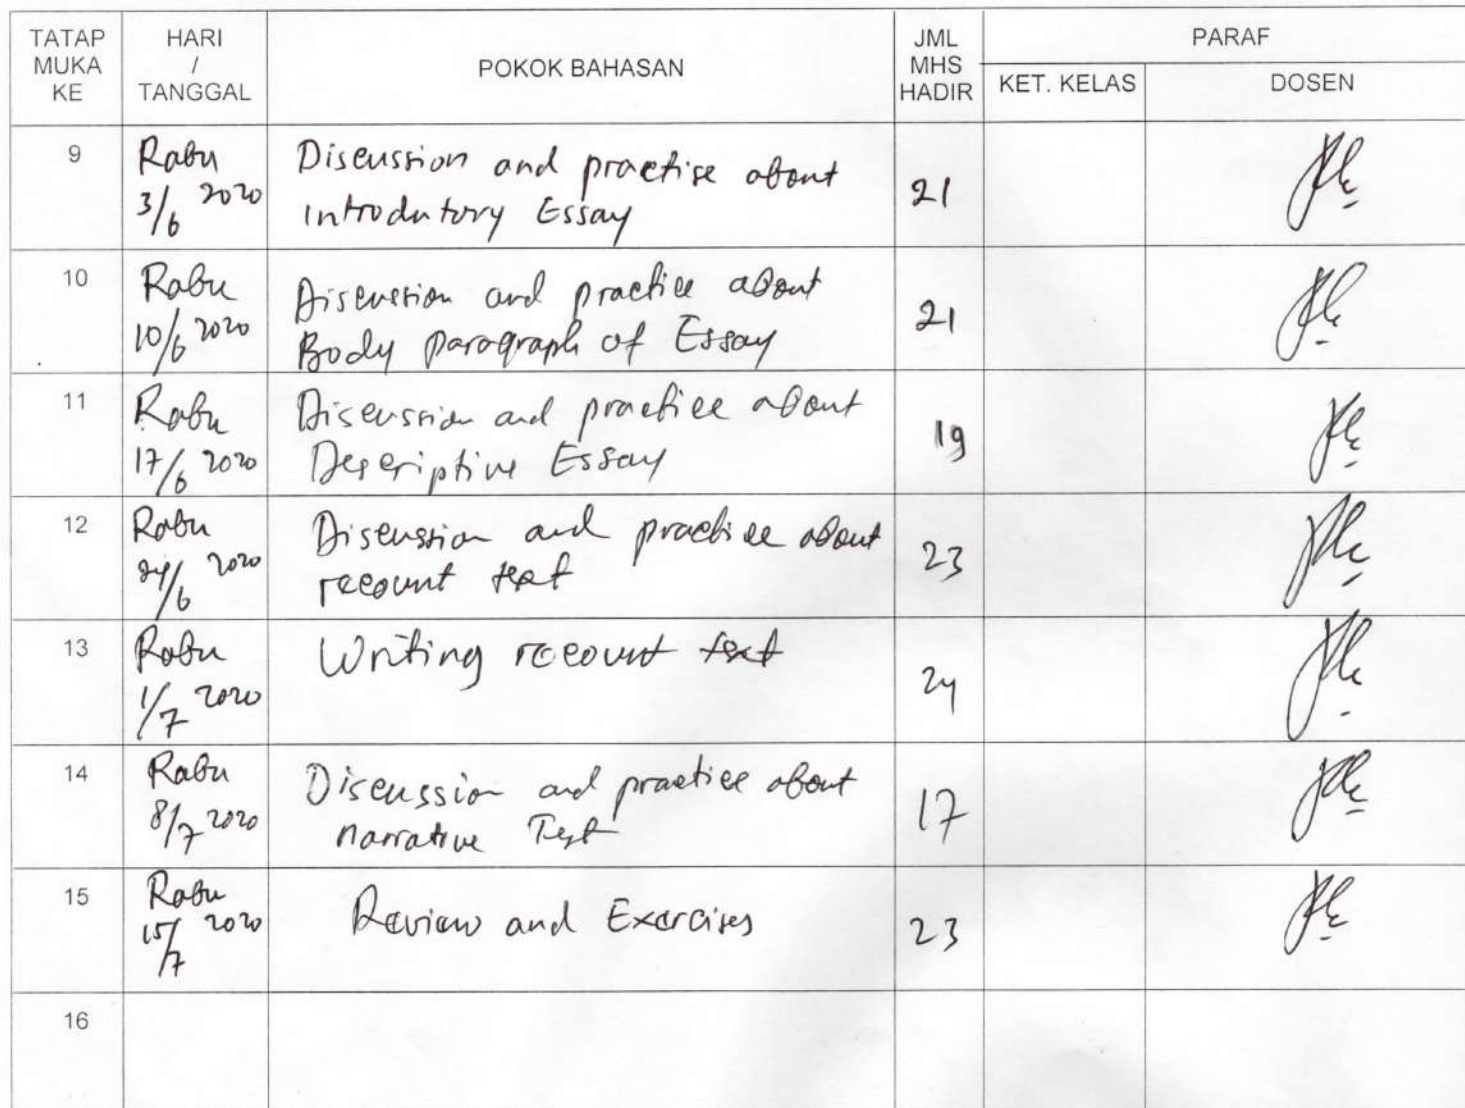 TATAP MUKA KE
HARI / TANGGAL
POKOK BAHASAN
JML MHS HADIR
PARAF
KET. KELAS
DOSEN
9
Rabu
3/6 2020
Discussion and practise about
introdutory Essay
21
10
Rabu
10/6 2020
Discussion and practice about
Body paragraph of Essay
21
11
Rabu
17/6 2020
Discussion and practice about
Descriptive Essay
19
12
Rabu
24/6 2020
Discussion and practice about
recount text
23
13
Rabu
1/7 2020
Writing recount text
24
14
Rabu
8/7 2020
Discussion and practice about
narrative Text
17
15
Rabu
15/7 2020
Review and Exercises
23
16